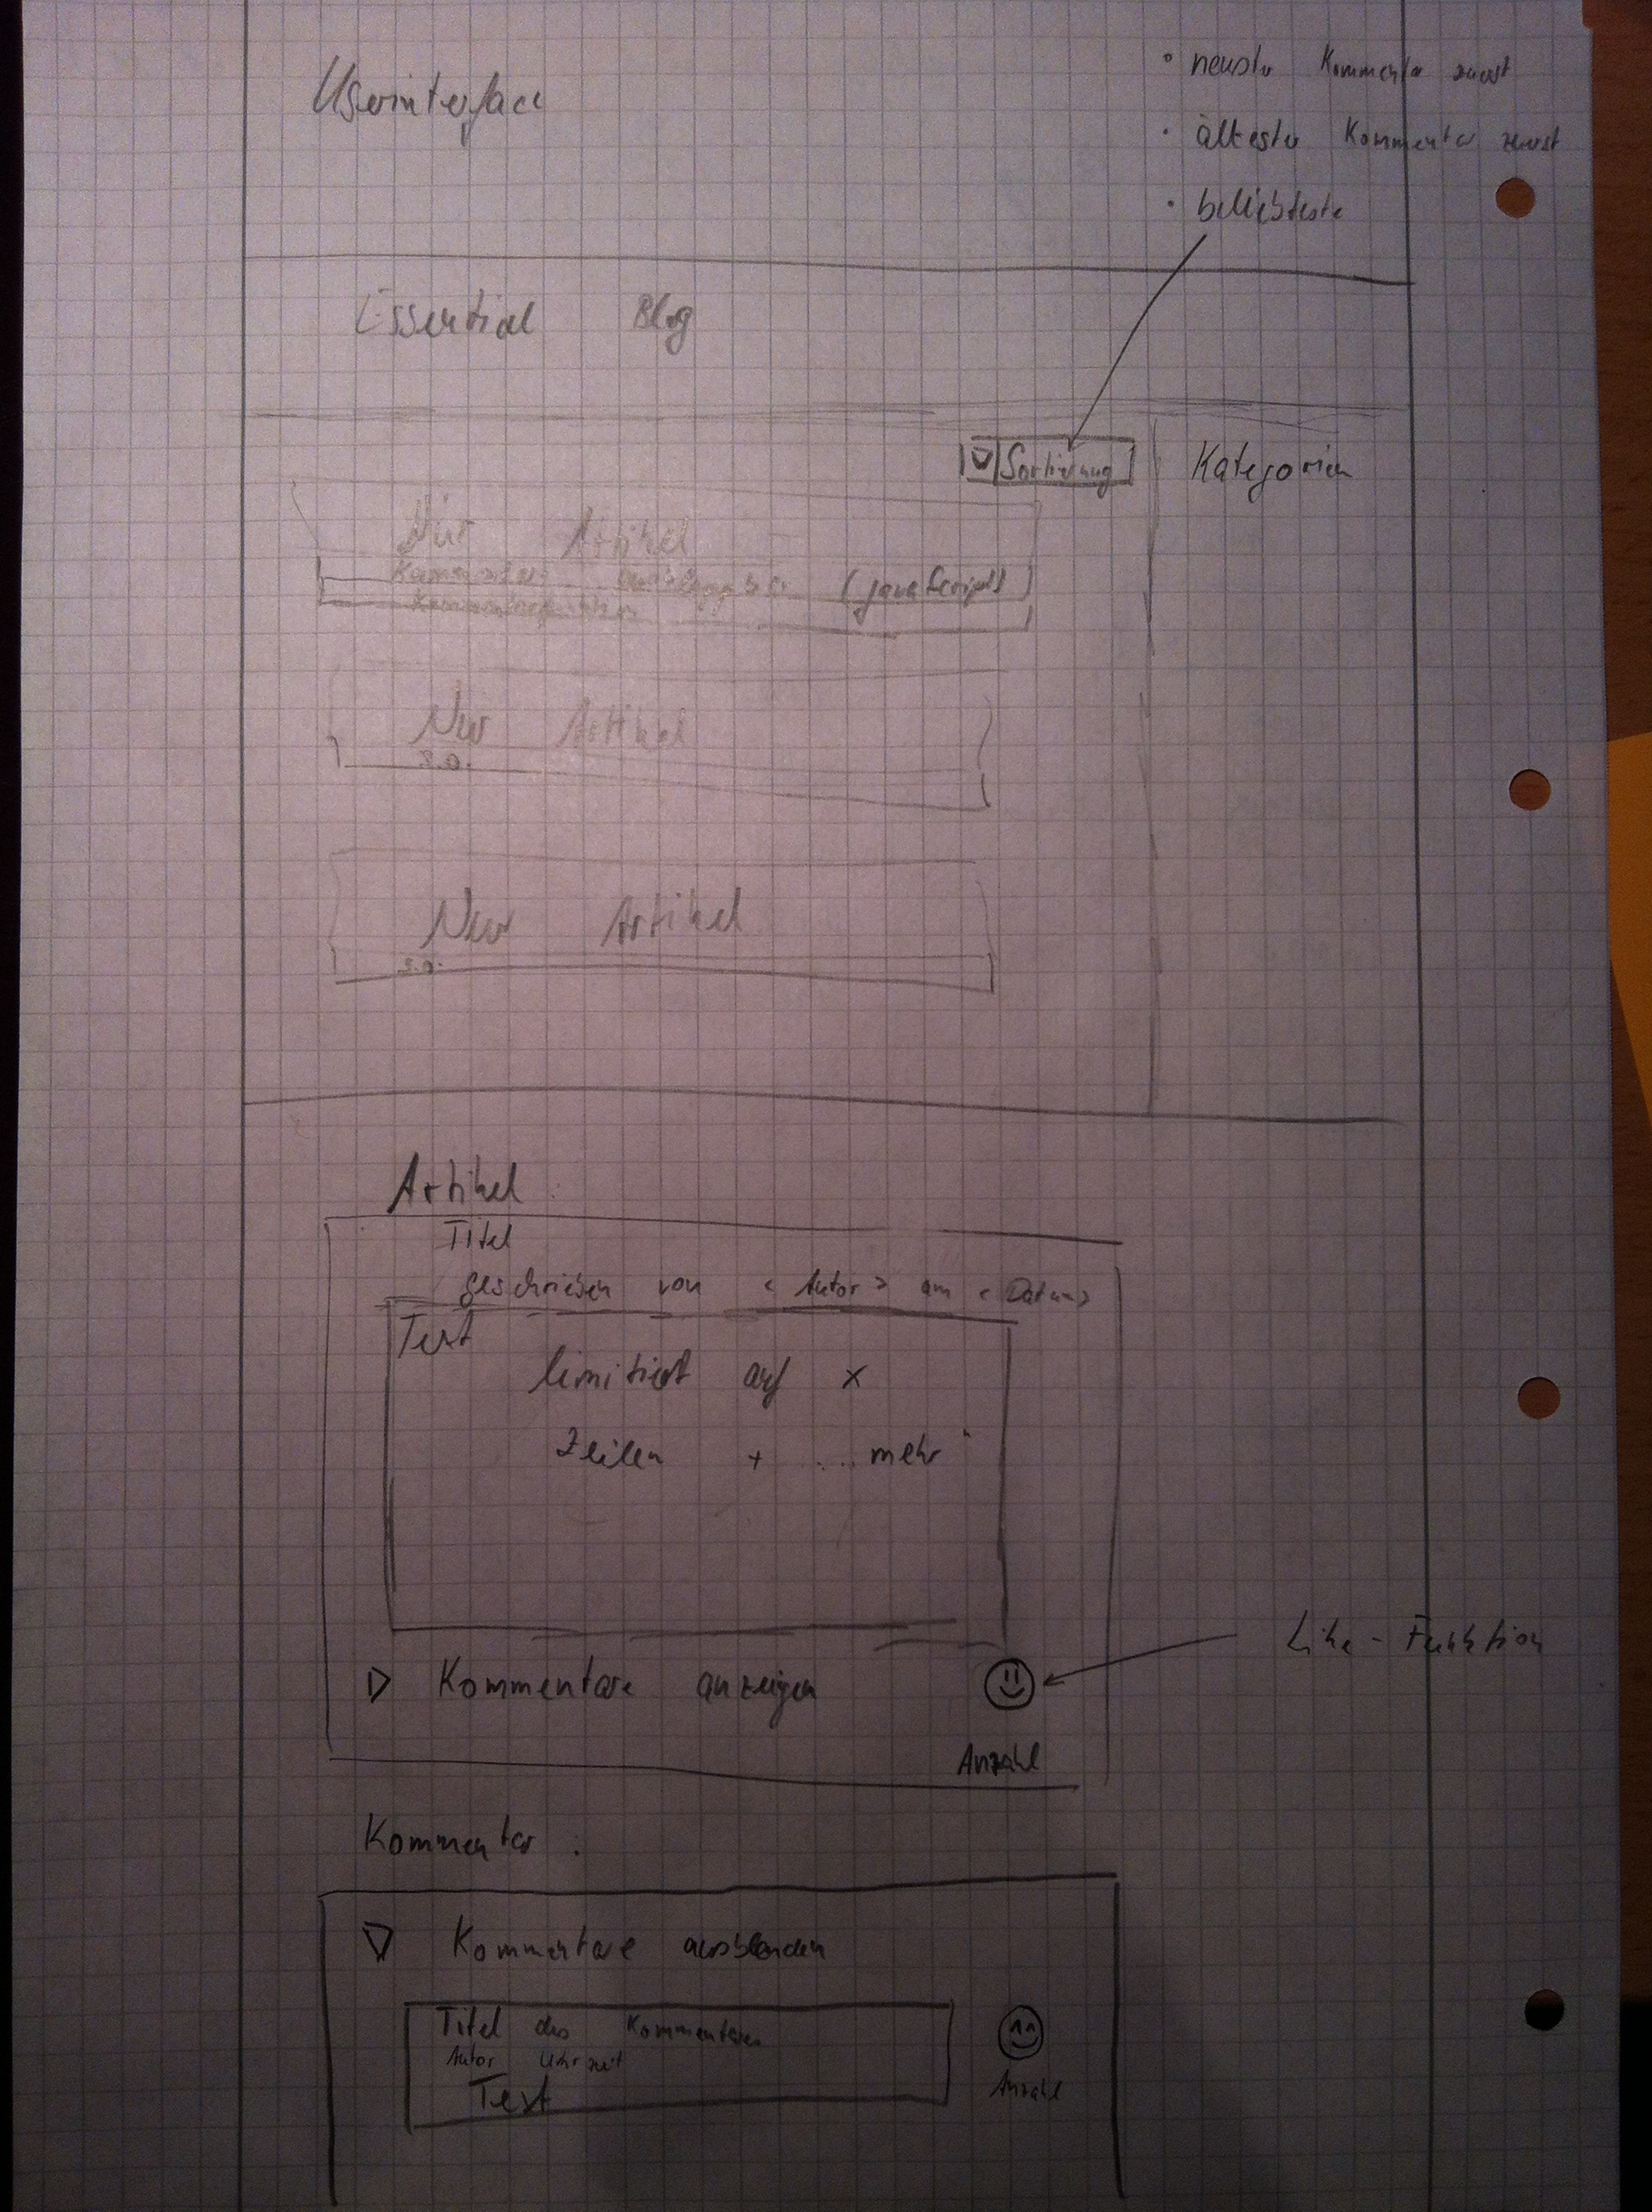 Userinterface
• neuste Kommentar zuerst
• älteste Kommentar zuerst
• beliebteste
Essential Blog
Sortierung
Kategorien
Artikel
(JavaScript)
Artikel
s.o.
Artikel
s.o.
Artikel:
Titel
geschrieben von <Autor> am <Datum>
Text
limitiert auf x
Zeilen + ... mehr"
Like-Funktion
Kommentare anzeigen
Anzahl
Kommentar:
Kommentare ausblenden
Titel des Kommentares
Autor Uhrzeit
Text
Anzahl